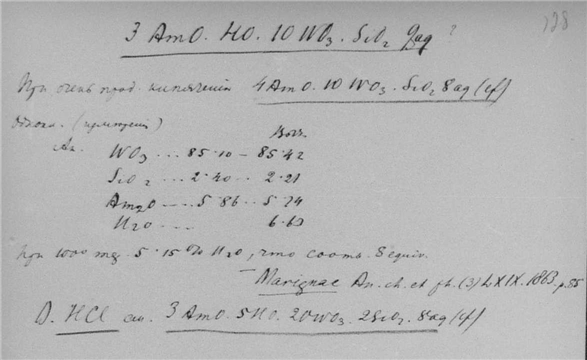 128
3 AmO. HO. 10 WO3. SiO2 9aq ?
При очень прод. кипячении 4 AmO. 10 WO3. SiO2 8 aq (cf)
An.
WO3 ... 85.10 – 85.42
SiO2 ... 2.40 .. 2.21
Am2O ... 5.86 .. 5.74
H2O ... 6.63
при 100º 5.15 % H2O, что соотв. 8 equiv.
Marignac An. ch. et ph. (3) LXIX. 1863. p. 55
D. HCl 3 AmO. 5 HO. 20 WO3. 2 SiO2. 8 aq (cf)